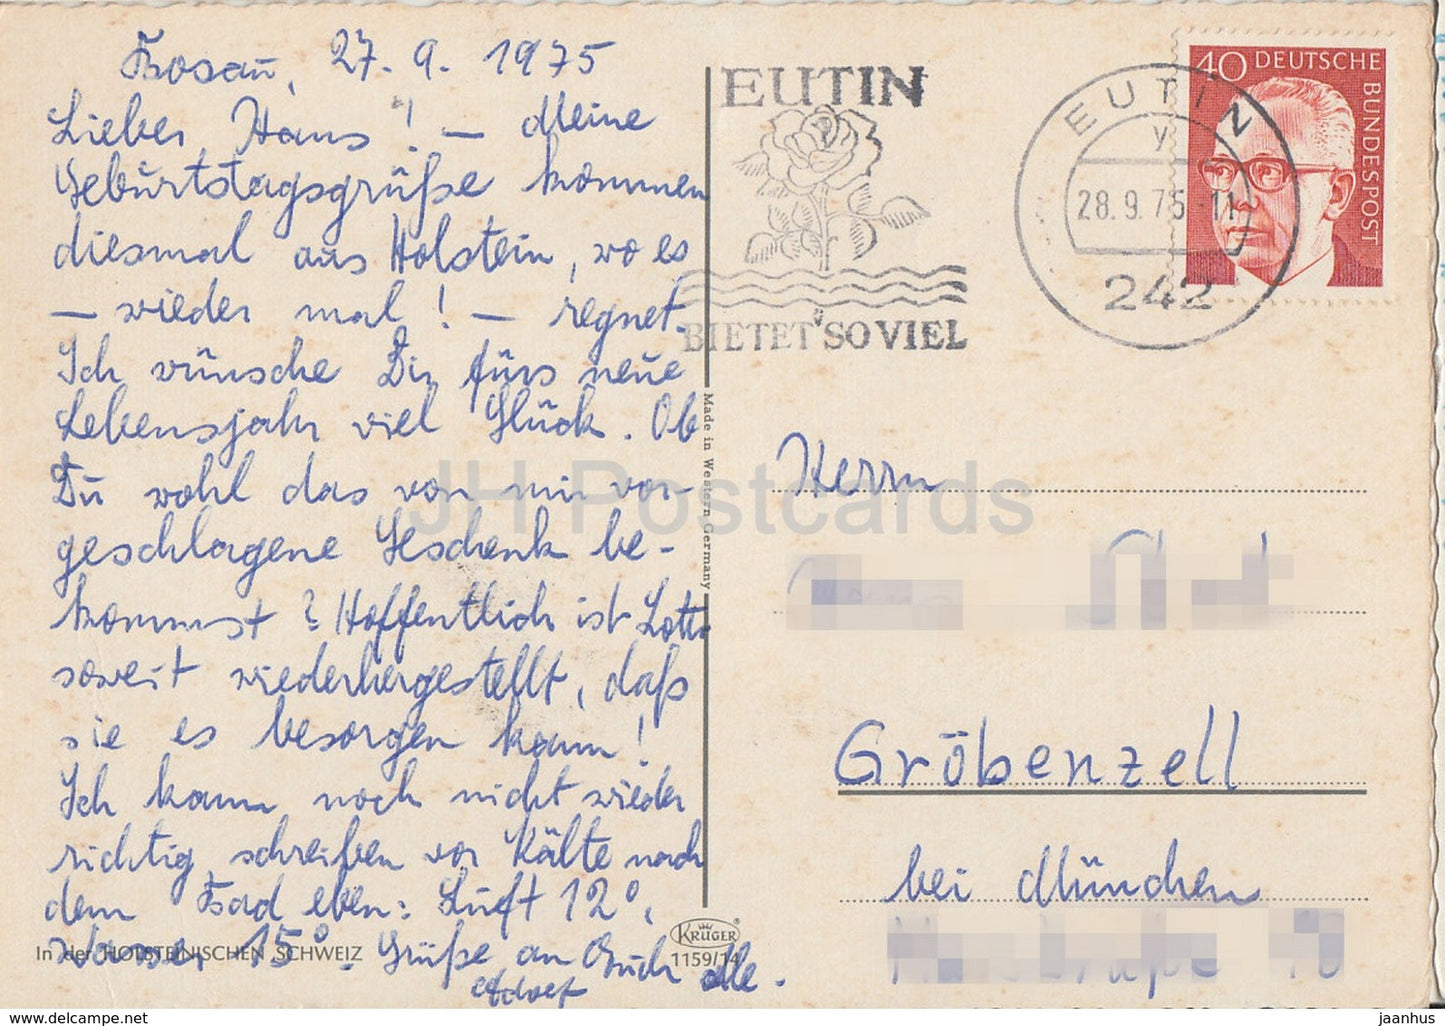 Bosau, 27. 9. 1975
Lieber Hans! – Meine
Geburtstagsgrüße kommen
diesmal aus Holstein, wo es
– wieder mal! – regnet.
Ich wünsche Dir fürs neue
Lebensjahr viel Glück. Ob
Du wohl das von mir vor-
geschlagene Geschenk be-
kommst? Hoffentlich ist Lotte
soweit wiederhergestellt, daß
sie es besorgen kann!
Ich kann noch nicht wieder
richtig schreiben vor Kälte nach
dem Bad eben: Luft 12°,
Wasser 15°. Grüße an Euch alle.
Adolf
In der HOLSTEINISCHEN SCHWEIZ
Made in Western Germany
KRÜGER®
1159/14
EUTIN
BIETET SO VIEL
EUTIN
y
28.9.75-11
242
40 DEUTSCHE
BUNDESPOST
Herrn
Gröbenzell
bei München
JH Postcards
www.delcampe.net
jaanhus